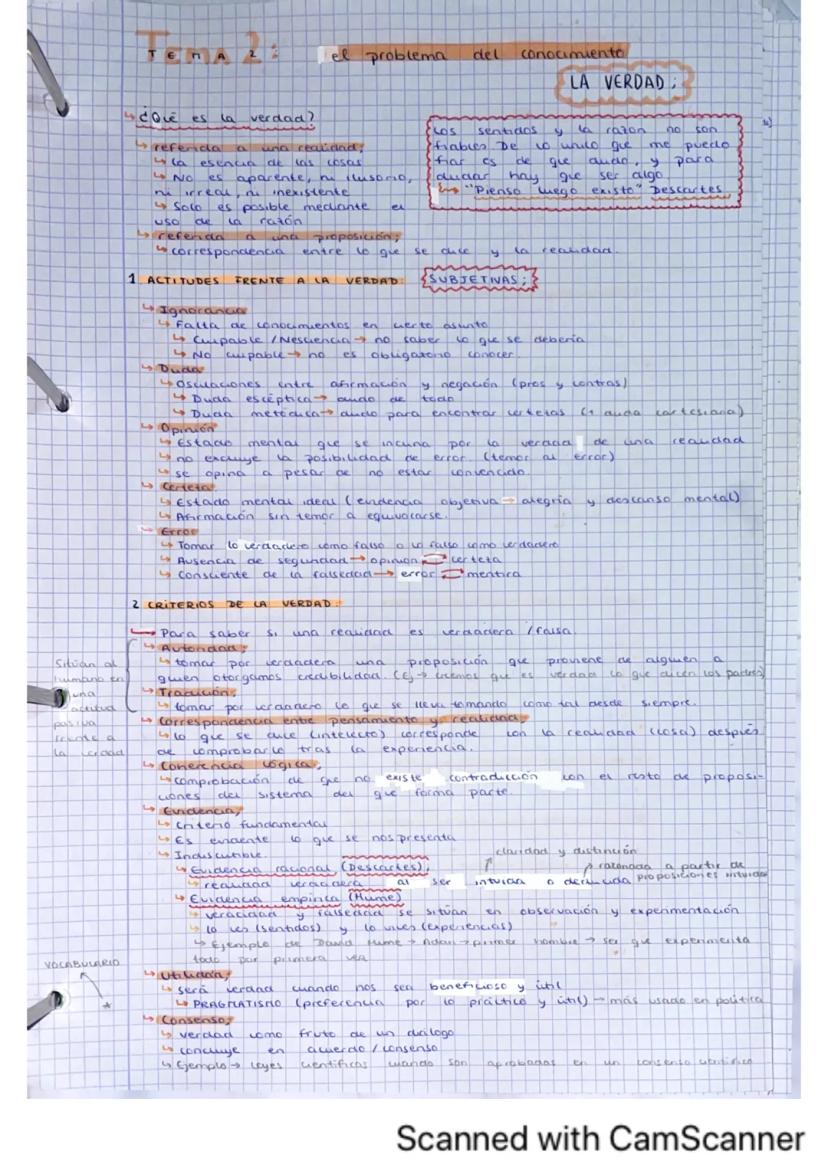 TEMA 2: el problema del conocimiento
LA VERDAD:
↳ ¿Qué es la verdad?
↳ referida a una realidad;
↳ la esencia de las cosas
↳ No es aparente, ni ilusorio,
ni irreal, ni inexistente
↳ Solo es posible mediante el
uso de la razón
Los sentidos y la razón no son
fiables. De lo único que me puedo
fiar es de que dudo, y para
dudar hay que ser algo.
↳ "Pienso luego existo" Descartes
↳ referida a una proposición;
↳ correspondencia entre lo que se dice y la realidad.
1 ACTITUDES FRENTE A LA VERDAD: {SUBJETIVAS:}
↳ Ignorancia
↳ Falta de conocimientos en cierto asunto
↳ Culpable / Nesciencia → no saber lo que se debería
↳ No culpable → no es obligatorio conocer.
↳ Duda
↳ Oscilaciones entre afirmación y negación (pros y contras)
↳ Duda escéptica → dudo de todo
↳ Duda metódica → dudo para encontrar certezas (1 duda cartesiana)
↳ Opinión
↳ Estado mental que se inclina por la verdad de una realidad
↳ no excluye la posibilidad de error. (temor al error)
↳ se opina a pesar de no estar convencido.
↳ Certeza
↳ Estado mental ideal (evidencia objetiva → alegría y descanso mental)
↳ Afirmación sin temor a equivocarse.
↳ Error
↳ Tomar lo verdadero como falso o lo falso como verdadero
↳ Ausencia de seguridad → opinión certeza
↳ Consciente de la falsedad → error mentira
2 CRITERIOS DE LA VERDAD:
Para saber si una realidad es verdadera / falsa
↳ Autoridad;
↳ tomar por verdadera una proposición que proviene de alguien a
quien otorgamos credibilidad. (Ej → creemos que es verdad lo que dicen los padres)
↳ Tradición;
↳ tomar por verdadero lo que se lleva tomando como tal desde siempre.
Sitúan al
humano en
una
actitud
pasiva
frente a
la verdad
↳ Correspondencia entre pensamiento y realidad;
↳ lo que se dice (intelecto) corresponde con la realidad (cosa) después
de comprobarlo tras la experiencia.
↳ Coherencia lógica;
↳ comprobación de que no existe contradicción con el resto de proposi-
ciones del sistema del que forma parte
↳ Evidencia;
↳ Criterio fundamental
↳ Es evidente lo que se nos presenta
↳ Indiscutible.
claridad y distinción
↳ Evidencia racional (Descartes);
razonada a partir de
proposiciones intuidas
↳ realidad verdadera al ser intuida o deducida
↳ Evidencia empírica (Hume)
↳ veracidad y falsedad se sitúan en observación y experimentación
↳ lo ves (sentidos) y lo vives (experiencias)
↳ Ejemplo de David Hume → Adán → primer hombre → ser que experimenta
todo por primera vez
VOCABULARIO
*
↳ Utilidad;
↳ será verdad cuando nos sea beneficioso y útil
↳ PRAGMATISMO (preferencia por lo práctico y útil) → más usado en política
↳ Consenso;
↳ verdad como fruto de un diálogo
↳ concluye en acuerdo / consenso
↳ Ejemplo → leyes científicas cuando son aprobadas en un consenso científico
Scanned with CamScanner